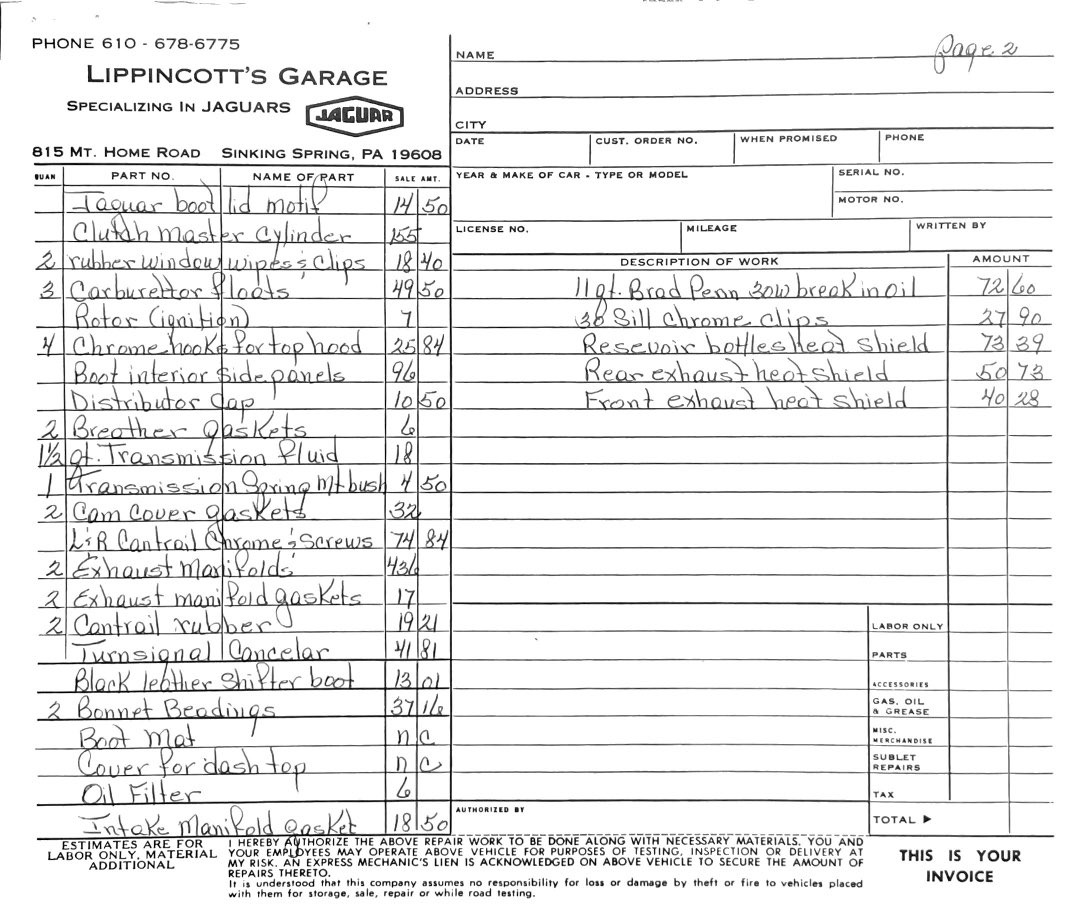 PHONE 610 - 678-6775
LIPPINCOTT'S GARAGE
SPECIALIZING IN JAGUARS
JAGUAR
815 MT. HOME ROAD SINKING SPRING, PA 19608
Page 2
NAME
ADDRESS
CITY
DATE CUST. ORDER NO. WHEN PROMISED PHONE
YEAR & MAKE OF CAR - TYPE OR MODEL SERIAL NO.
MOTOR NO.
LICENSE NO. MILEAGE WRITTEN BY
QUAN PART NO. NAME OF PART SALE AMT.
Jaguar boot lid motif 14 50
Clutch master cylinder 155
2 rubber window wipes & clips 18 40
3 Carburettor floats 49 50
Rotor (ignition) 7
4 Chrome hooks for top hood 25 84
Boot interior side panels 96
Distributor Cap 10 50
2 Breather gaskets 6
1 1/2 qt. Transmission fluid 18
1 Transmission Spring Mt bush 4 50
2 Cam Cover gaskets 32
L & R Cantrail Chrome & Screws 74 84
2 Exhaust Manifolds 436
2 Exhaust manifold gaskets 17
2 Cantrail rubber 19 21
Turnsignal Cancelar 41 81
Black leather shifter boot 13 01
2 Bonnet Beadings 37 16
Boot Mat n c
Cover for dash top n c
Oil Filter 6
Intake Manifold gasket 18 50
DESCRIPTION OF WORK AMOUNT
11 qt. Brad Penn 30w break in oil 72 60
36 Sill Chrome Clips 27 90
Resevoir bottles heat shield 73 39
Rear exhaust heat shield 50 73
Front exhaust heat shield 40 28
LABOR ONLY
PARTS
ACCESSORIES
GAS, OIL
& GREASE
MISC.
MERCHANDISE
SUBLET
REPAIRS
TAX
AUTHORIZED BY
TOTAL ▶
ESTIMATES ARE FOR
LABOR ONLY, MATERIAL
ADDITIONAL
I HEREBY AUTHORIZE THE ABOVE REPAIR WORK TO BE DONE ALONG WITH NECESSARY MATERIALS. YOU AND
YOUR EMPLOYEES MAY OPERATE ABOVE VEHICLE FOR PURPOSES OF TESTING, INSPECTION OR DELIVERY AT
MY RISK. AN EXPRESS MECHANIC'S LIEN IS ACKNOWLEDGED ON ABOVE VEHICLE TO SECURE THE AMOUNT OF
REPAIRS THERETO.
It is understood that this company assumes no responsibility for loss or damage by theft or fire to vehicles placed
with them for storage, sale, repair or while road testing.
THIS IS YOUR
INVOICE